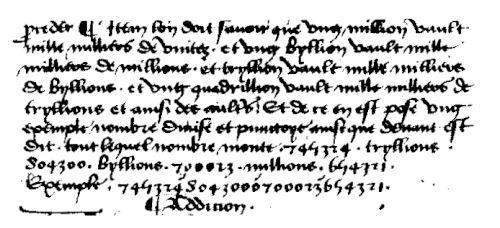 proceder ¶ Item lon doit savoir que ung million vault
mille milliers de unitez . et ung byllion vault mille
milliers de millions . et tryllion vault mille milliers
de byllions . et ung quadrillion vault mille milliers de
tryllions et ainsi des aultres . Et de ce en est pose ung
exemple nombre divise et punctoye ainsi que devant est
dit . tout lequel nombre monte . 745324 . tryllions
804300 . byllions . 700023 . millions . 654321 .
Exemple . 745324804300700023654321 .
¶ Addicion .